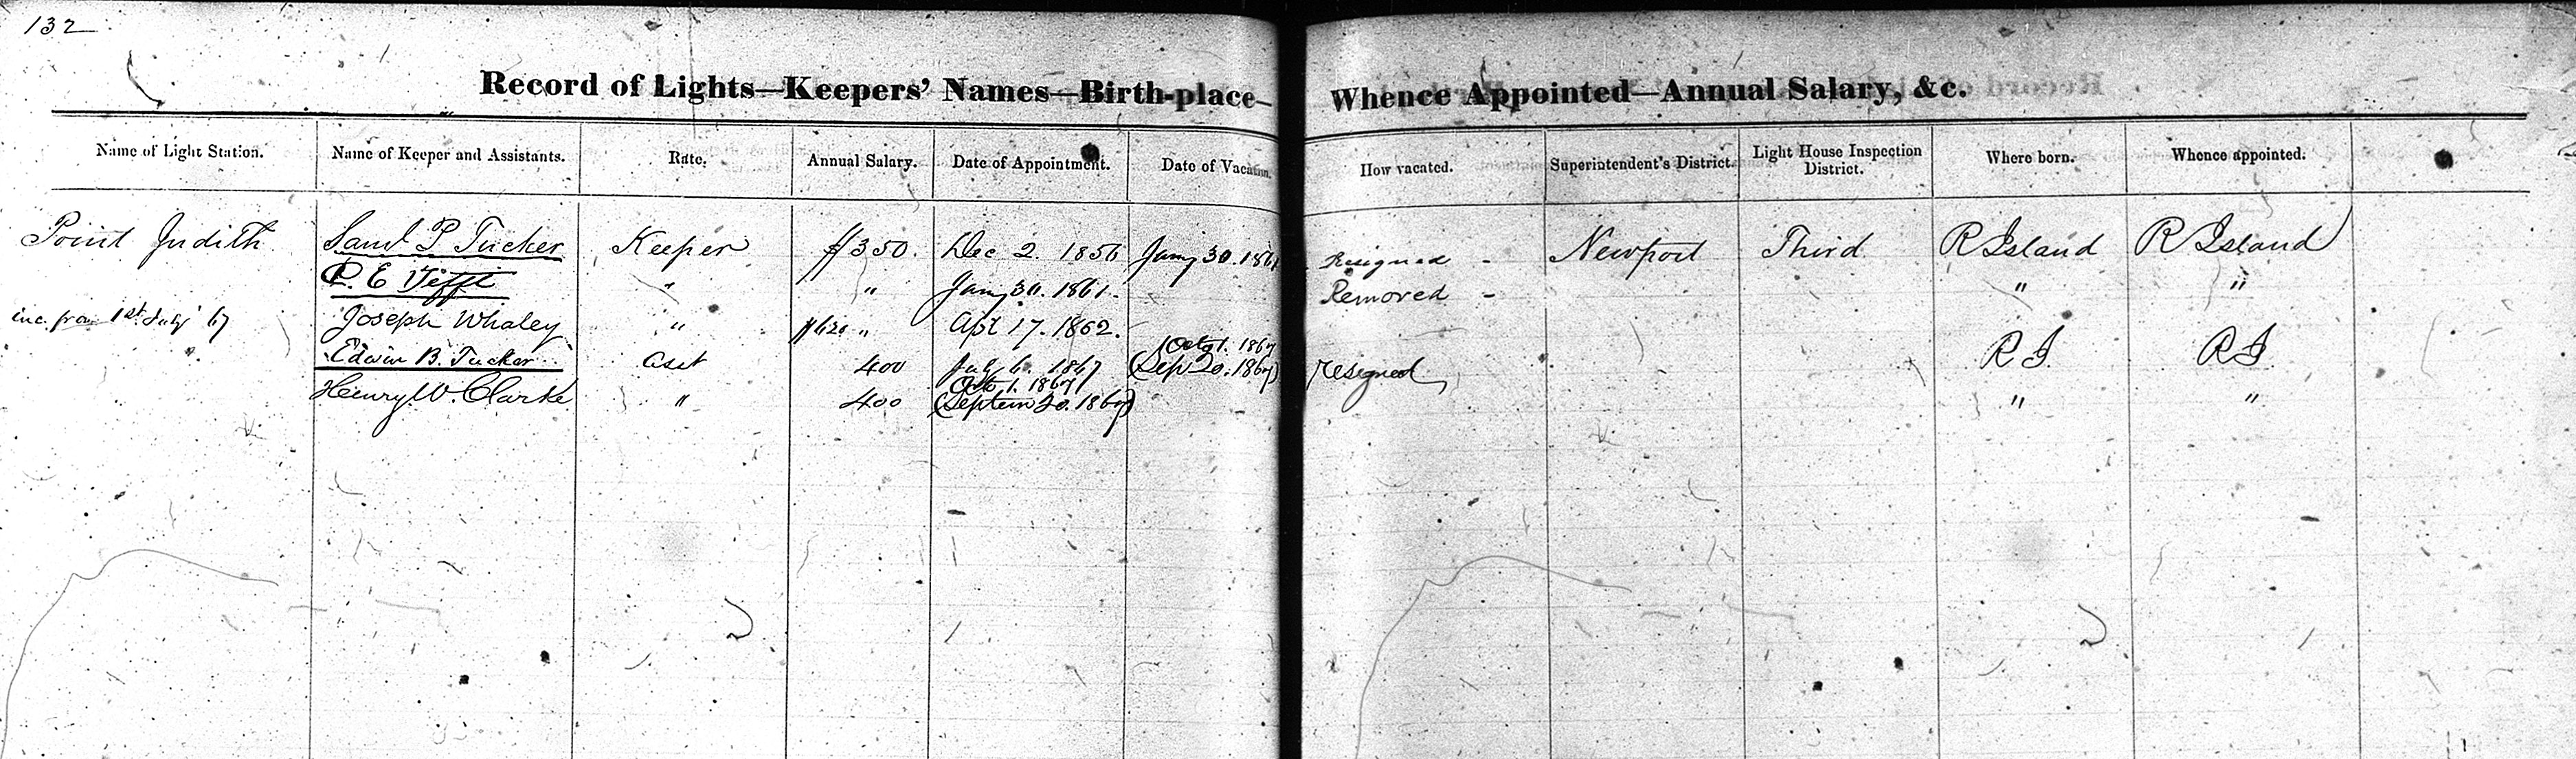 132
Record of Lights—Keepers' Names—Birth-place— Whence Appointed—Annual Salary, &c.
Name of Light Station. Name of Keeper and Assistants. Rate. Annual Salary. Date of Appointment. Date of Vacation. How vacated. Superintendent's District. Light House Inspection District. Where born. Whence appointed.
Point Judith Saml P Tucker Keeper $350. Dec 2. 1856 Jany 30. 1861 Resigned - Newport Third R Island R Island
P. E Tifft " " Jany 30. 1861. Removed - " "
inc. from 1st July 67 Joseph Whaley " $620 " Apl 17. 1862.
Edwin B. Tucker Asst 400 July 6. 1867 Octo 1. 1867 (Sep 20. 1867) resigned R I. R I.
Henry W. Clarke " 400 Octo 1. 1867 (Septem 20. 1867) " "